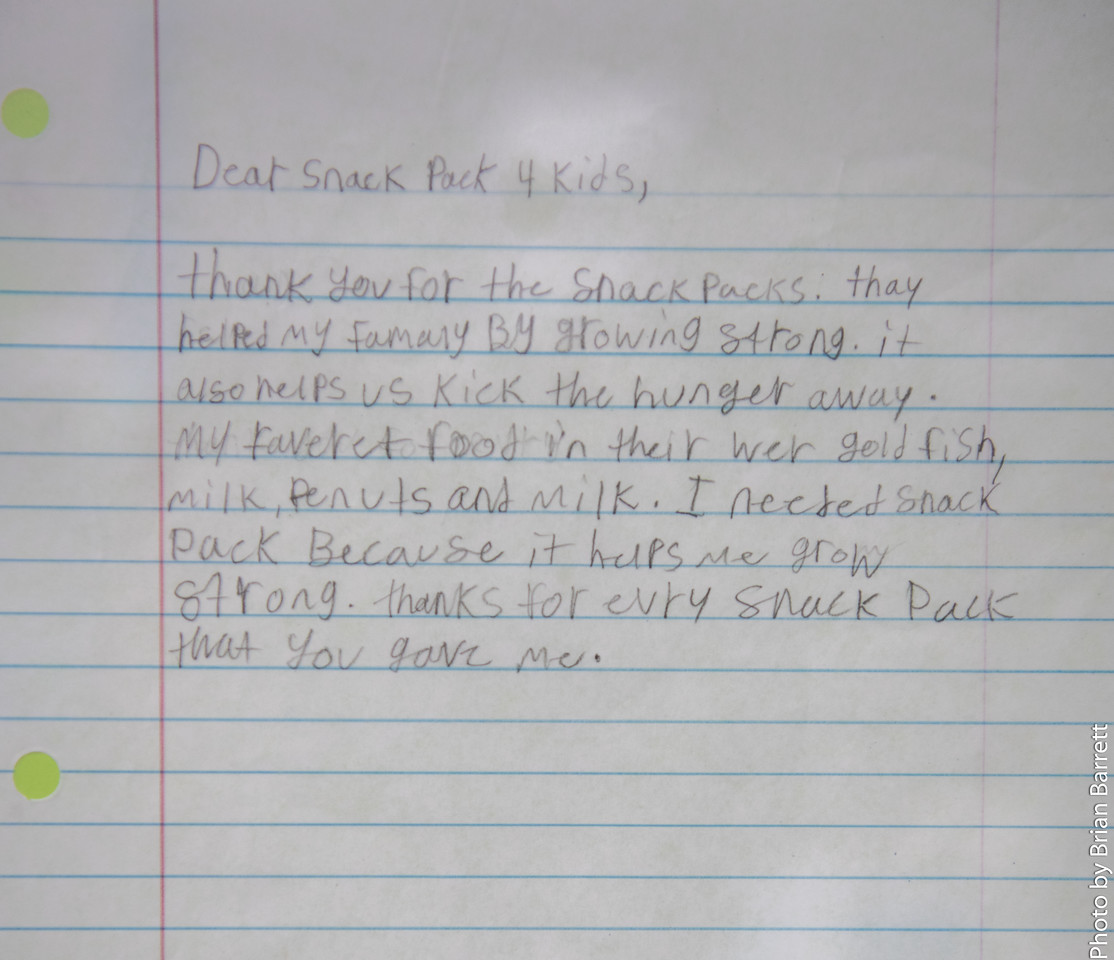 Dear Snack Pack 4 Kids,
thank you for the Snack Packs. thay
helped my Famaly By growing strong. it
also helps us Kick the hunger away.
My faveret food in their wer gold fish,
milk, Penuts and Milk. I needed Snack
Pack Because it helps me grow
strong. thanks for evry Snack Pack
that you gave me.
Photo by Brian Barrett